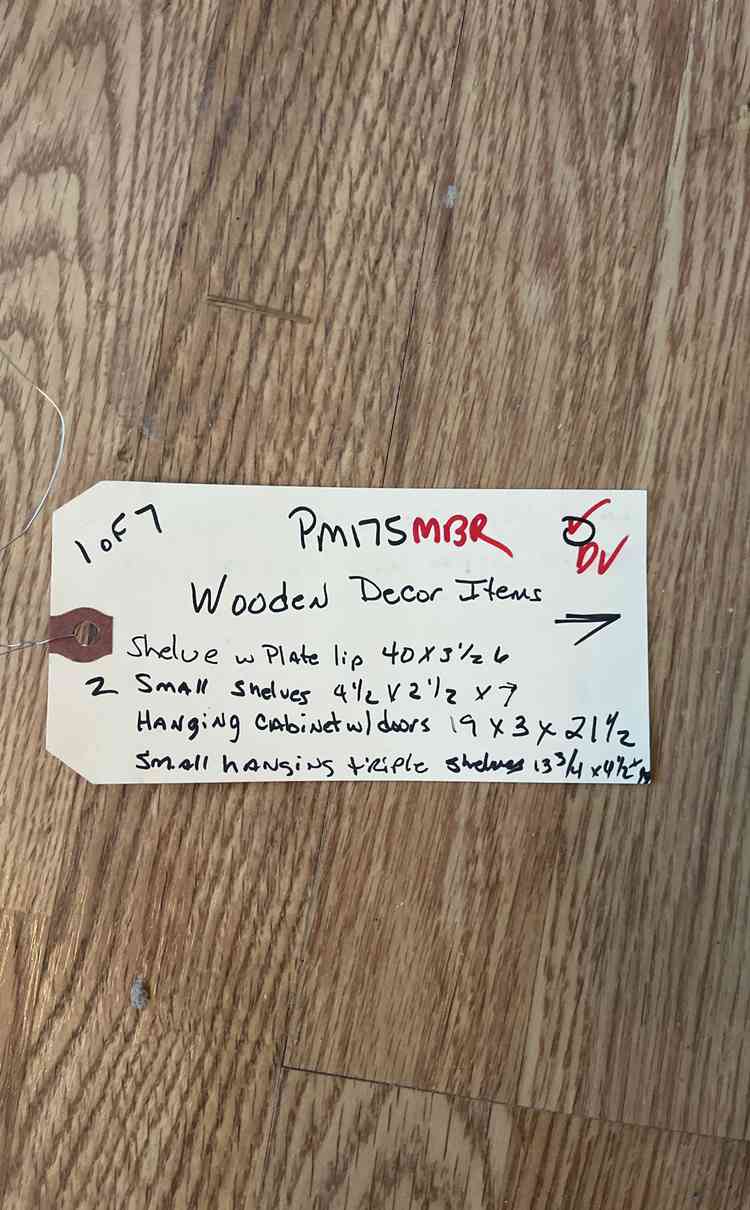 1 of 7
PM175MBR
DV
Wooden Decor Items
Shelve w Plate lip 40 x 3 1/2 6
2 Small Shelves 4 1/2 x 2 1/2 x 7
Hanging Cabinet w/ doors 19 x 3 x 21 1/2
Small hanging triple shelves 13 3/4 x 4 1/2 x